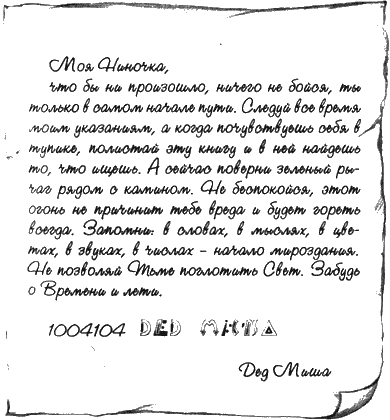 Моя Ниночка,
что бы ни произошло, ничего не бойся, ты
только в самом начале пути. Следуй все время
моим указаниям, а когда почувствуешь себя в
тупике, полистай эту книгу и в ней найдешь
то, что ищешь. А сейчас поверни зеленый ры-
чаг рядом с камином. Не беспокойся, этот
огонь не причинит тебе вреда и будет гореть
всегда. Запомни: в словах, в мыслях, в цве-
тах, в звуках, в числах – начало мироздания.
Не позволяй Тьме поглотить Свет. Забудь
о Времени и лети.
1004104 DED
Дед Миша